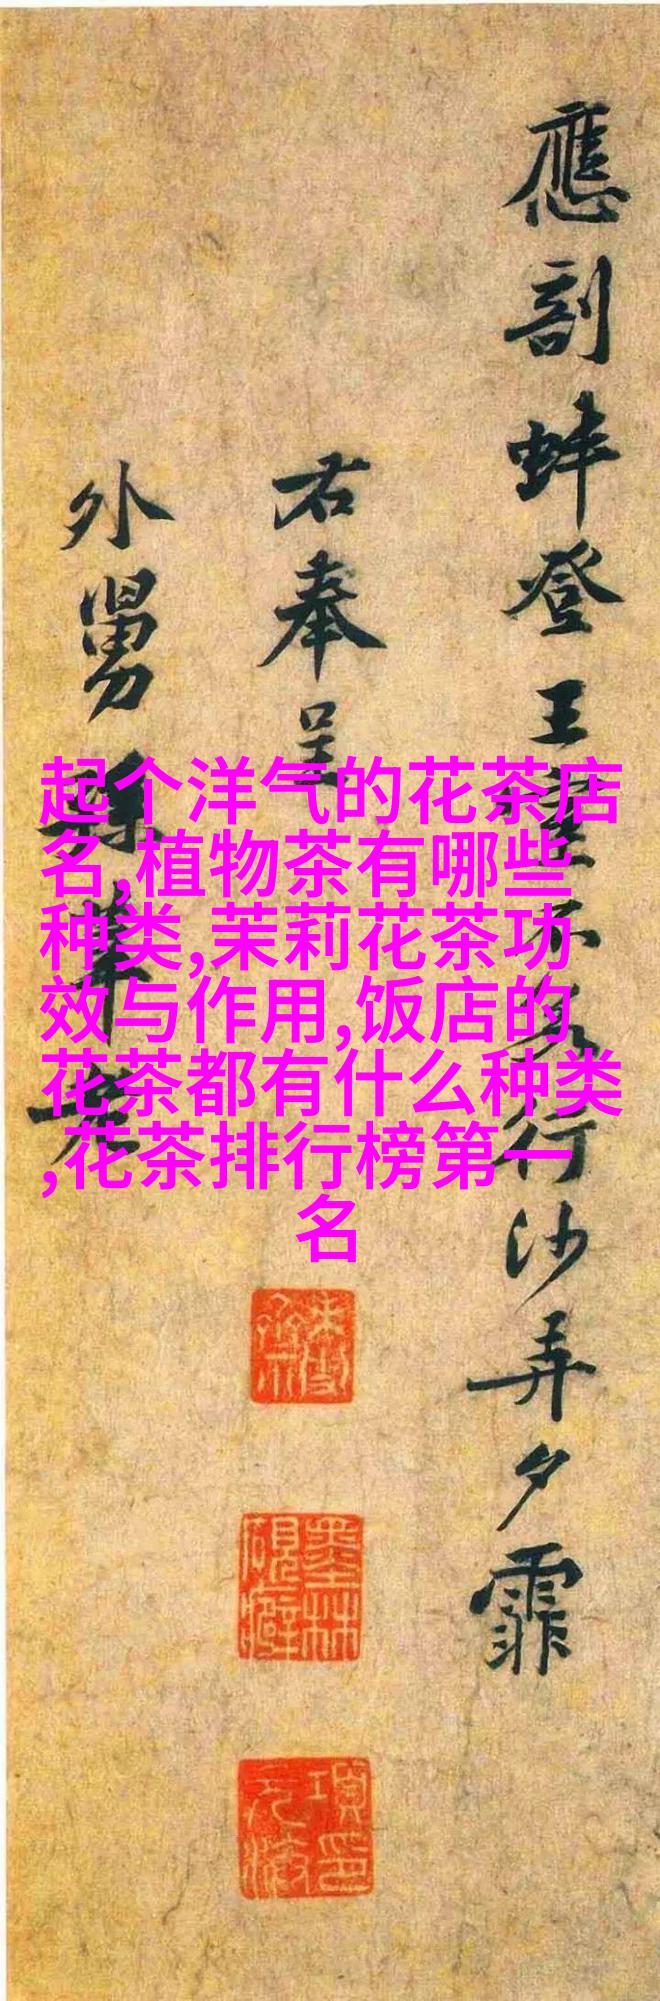 應剖蚌登王
行沙弄夕霏
右奉呈
外舅
起个洋气的花茶店
名,植物茶有哪些
种类,茉莉花茶功
效与作用,饭店的
花茶都有什么种类
,花茶排行榜第一
名
墨林
項元